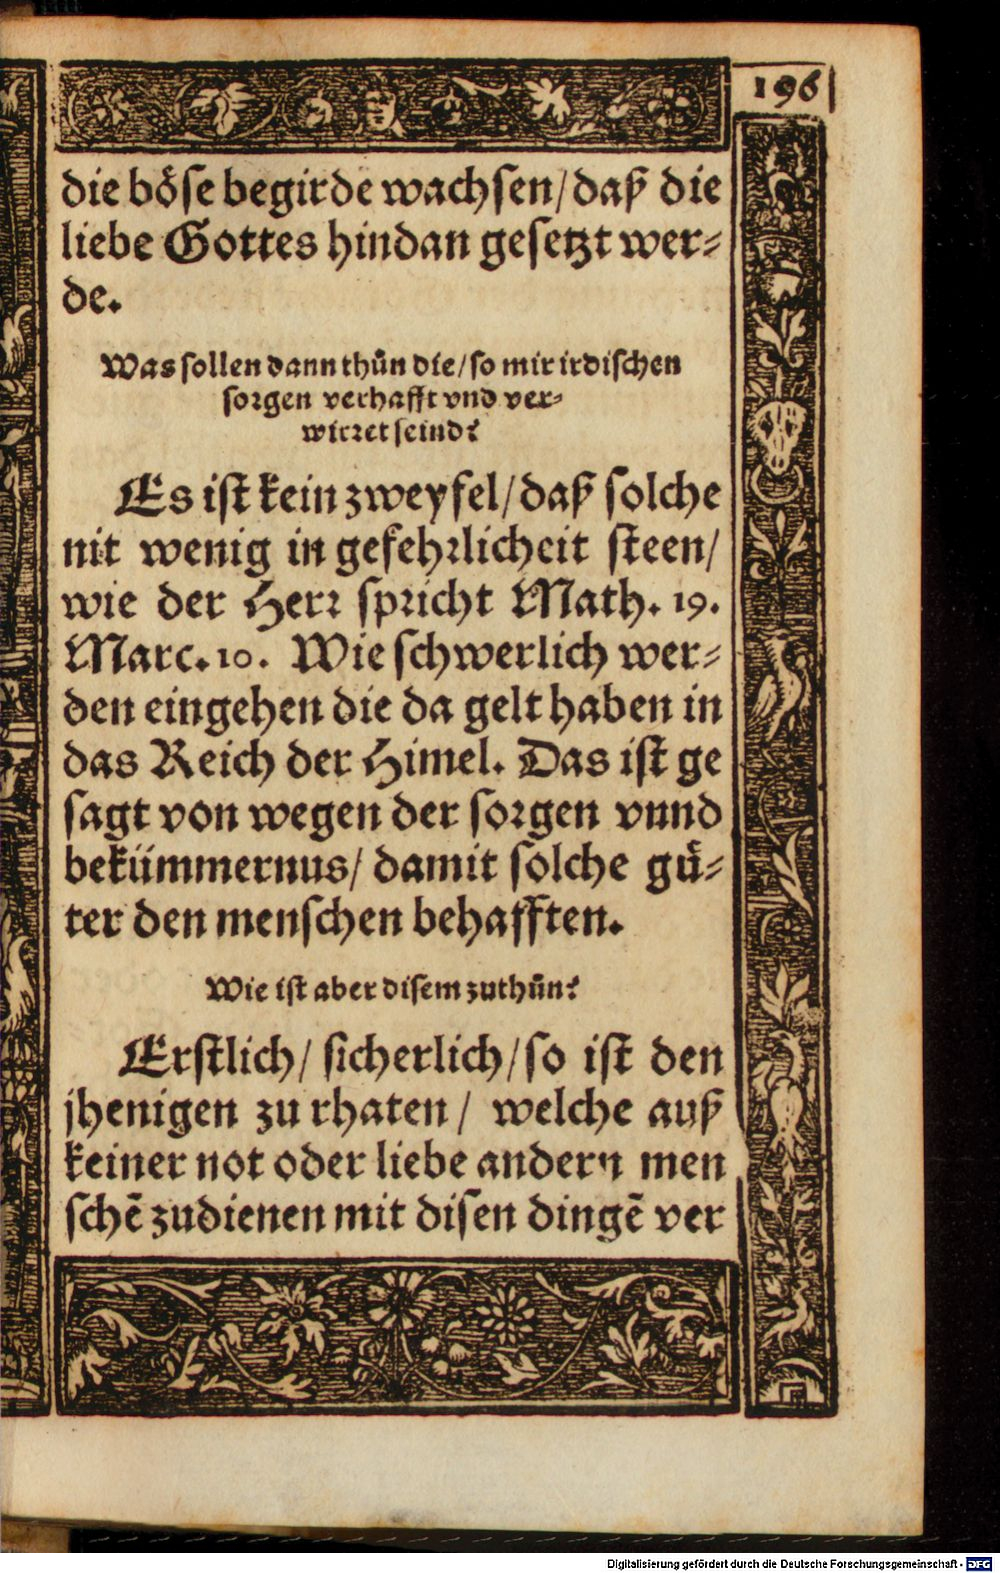 196
die böse begirde wachsen/ daß die
liebe Gottes hindan gesetzt wer-
de.
Was sollen dann thůn die/ so mir irdischen
sorgen verhafft vnd ver-
wirret seind?
Es ist kein zweyfel/ daß solche
nit wenig in gefehrlicheit steen/
wie der Herr spricht Math. 19.
Marc. 10. Wie schwerlich wer-
den eingehen die da gelt haben in
das Reich der Himel. Das ist ge
sagt von wegen der sorgen vnnd
bekümmernus/ damit solche gů-
ter den menschen behafften.
Wie ist aber disem zuthůn?
Erstlich/ sicherlich/ so ist den
jhenigen zu rhaten/ welche auß
keiner not oder liebe andern men
schē zudienen mit disen dingē ver
Digitalisierung gefördert durch die Deutsche Forschungsgemeinschaft - DFG